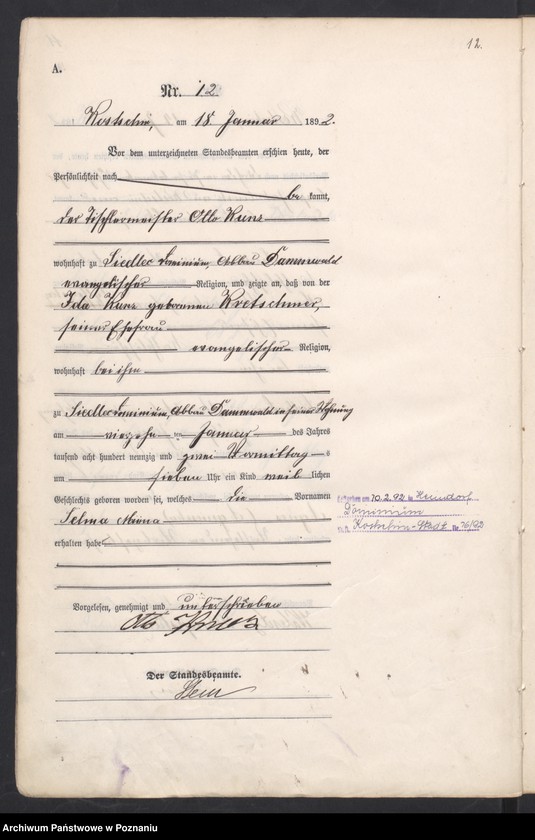 12.
A.
Nr. 12
Kostschin, am 18. Januar 1892.
Vor dem unterzeichneten Standesbeamten erschien heute, der
Persönlichkeit nach
be kannt,
der Tischlermeister Otto Kunz
wohnhaft zu Siedlec Dominium, Abbau Dammwald
evangelischer Religion, und zeigte an, daß von der
Ida Kunz geborenen Kretschmer,
seiner Ehefrau
evangelischer Religion,
wohnhaft bei ihm
zu Siedlec Dominium, Abbau Dammwald in seiner Wohnung
am vierzehn ten Januar des Jahres
tausend acht hundert neunzig und zwei Vormittag s
um sieben Uhr ein Kind weib lichen
Geschlechts geboren worden sei, welches die Vornamen
Selma
erhalten habe
Vorgelesen, genehmigt und unterschrieben
Otto Kunz
Der Standesbeamte.
Gestorben am 10.2.92 in
Dominium
Kostschin-Stadt Nr. 16/92
Archiwum Państwowe w Poznaniu